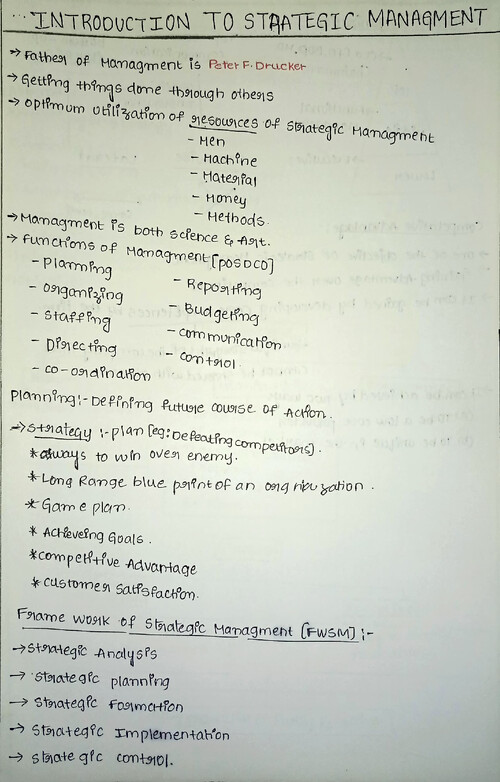 INTRODUCTION TO STRATEGIC MANAGMENT
→ Father of Managment is Peter F. Drucker
→ Getting things done through others
→ optimum utilization of resources of strategic Managment
- Men
- Machine
- Material
- Money
- Methods.
→ Managment is both science & Art.
→ functions of Managment [POSDCO]
- Planning
- organizing
- Staffing
- Directing
- co-ordination
- Reporting
- Budgeting
- communication
- control
Planning:- Defining future course of Action.
→ strategy :- plan [eg: Defeating competitors].
* always to win over enemy.
* Long Range blue print of an orgnization.
* Game plan.
* Achieveing Goals.
* competitive Advantage
* customer satisfaction.
Frame work of Strategic Managment [FWSM] :-
→ strategic Analysis
→ strategic planning
→ strategic Formation
→ strategic Implementation
→ strategic control.